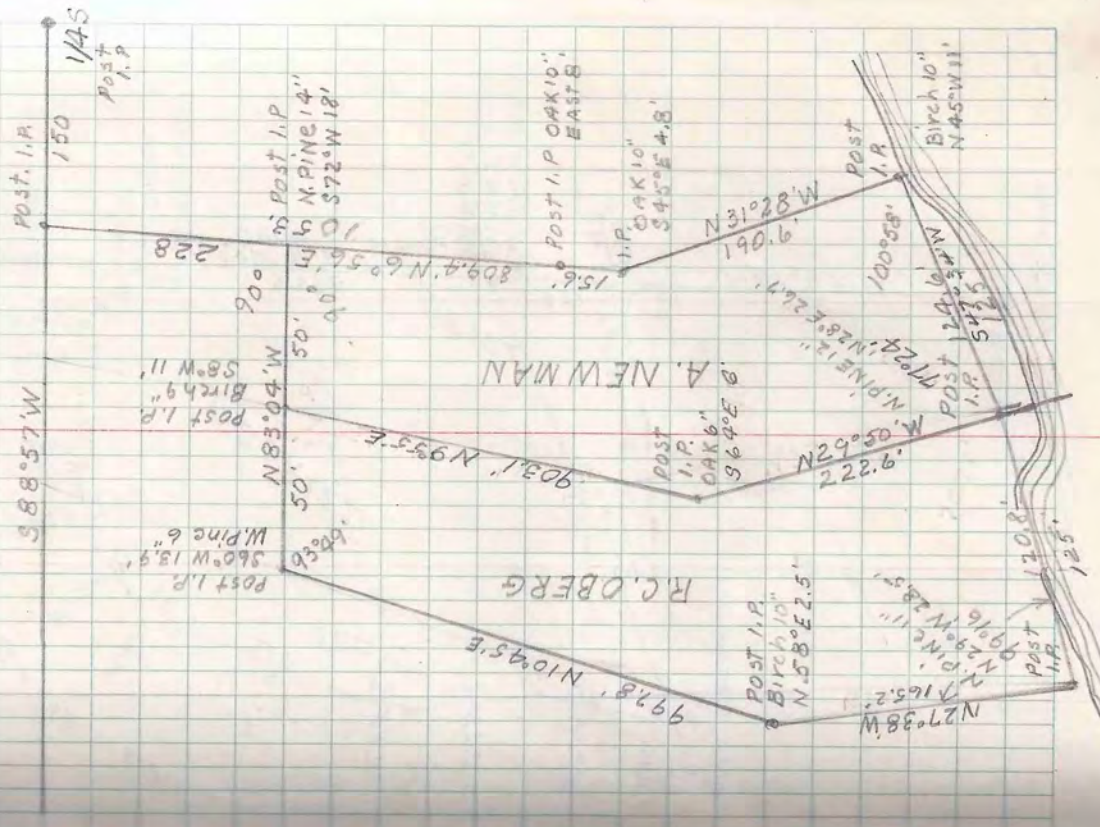 1/4S
Post
I.P
Post. I.P.
150
S 88°57'W
228
Post I.P
N.PINE 14"
S72°W 18'
90°
90°
809.4' N 6°56'E
Post I.P OAK 10"
EAST 8'
15.6'
I.P.
OAK 10"
S45°E 4.8'
N 31°28'W
190.6'
Post
I.P.
Birch 10"
N45°W 11'
100°58'
124.6'
125
N.PINE 12"
N28°E 26.7'
77°24'
POST
I.P.
A. NEWMAN
50'
N 83°04'W
50'
Post I.P.
Birch 9"
S8°W 11'
903.1' N9°55'E
Post
I.P.
OAK 6"
S64°E 6'
N26°50'W
222.9'
Post I.P.
S60°W 13.9'
W.Pine 6"
93°49'
R.C. OBERG
997.8' N10°45'E
POST I.P.
Birch 10"
N.58°E 2.5'
N27°38'W
165.2'
PINE 11"
N29°W 28.5'
99°16'
POST
I.P.
120.8'
125'